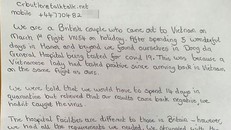 crbutler@talktalk.net
mobile +44770482
We are a British couple who came out to Vietnam on
March 1st Flight VN54 on holiday. After spending 3 wonderful
days in Hanoi and beyond we found ourselves in Dong da
General Hospital being tested for covid 19. This was because a
Vietnamese lady had tested positive since arriving back in Vietnam
on the same flight as ours.
We were told that we would have to spend 14 days in
quarantine but relieved that all results came back negative we
hadn't caught the virus.
The hospital facilities are different to those in Britain - however,
we had all the requirements we needed. We observed with the